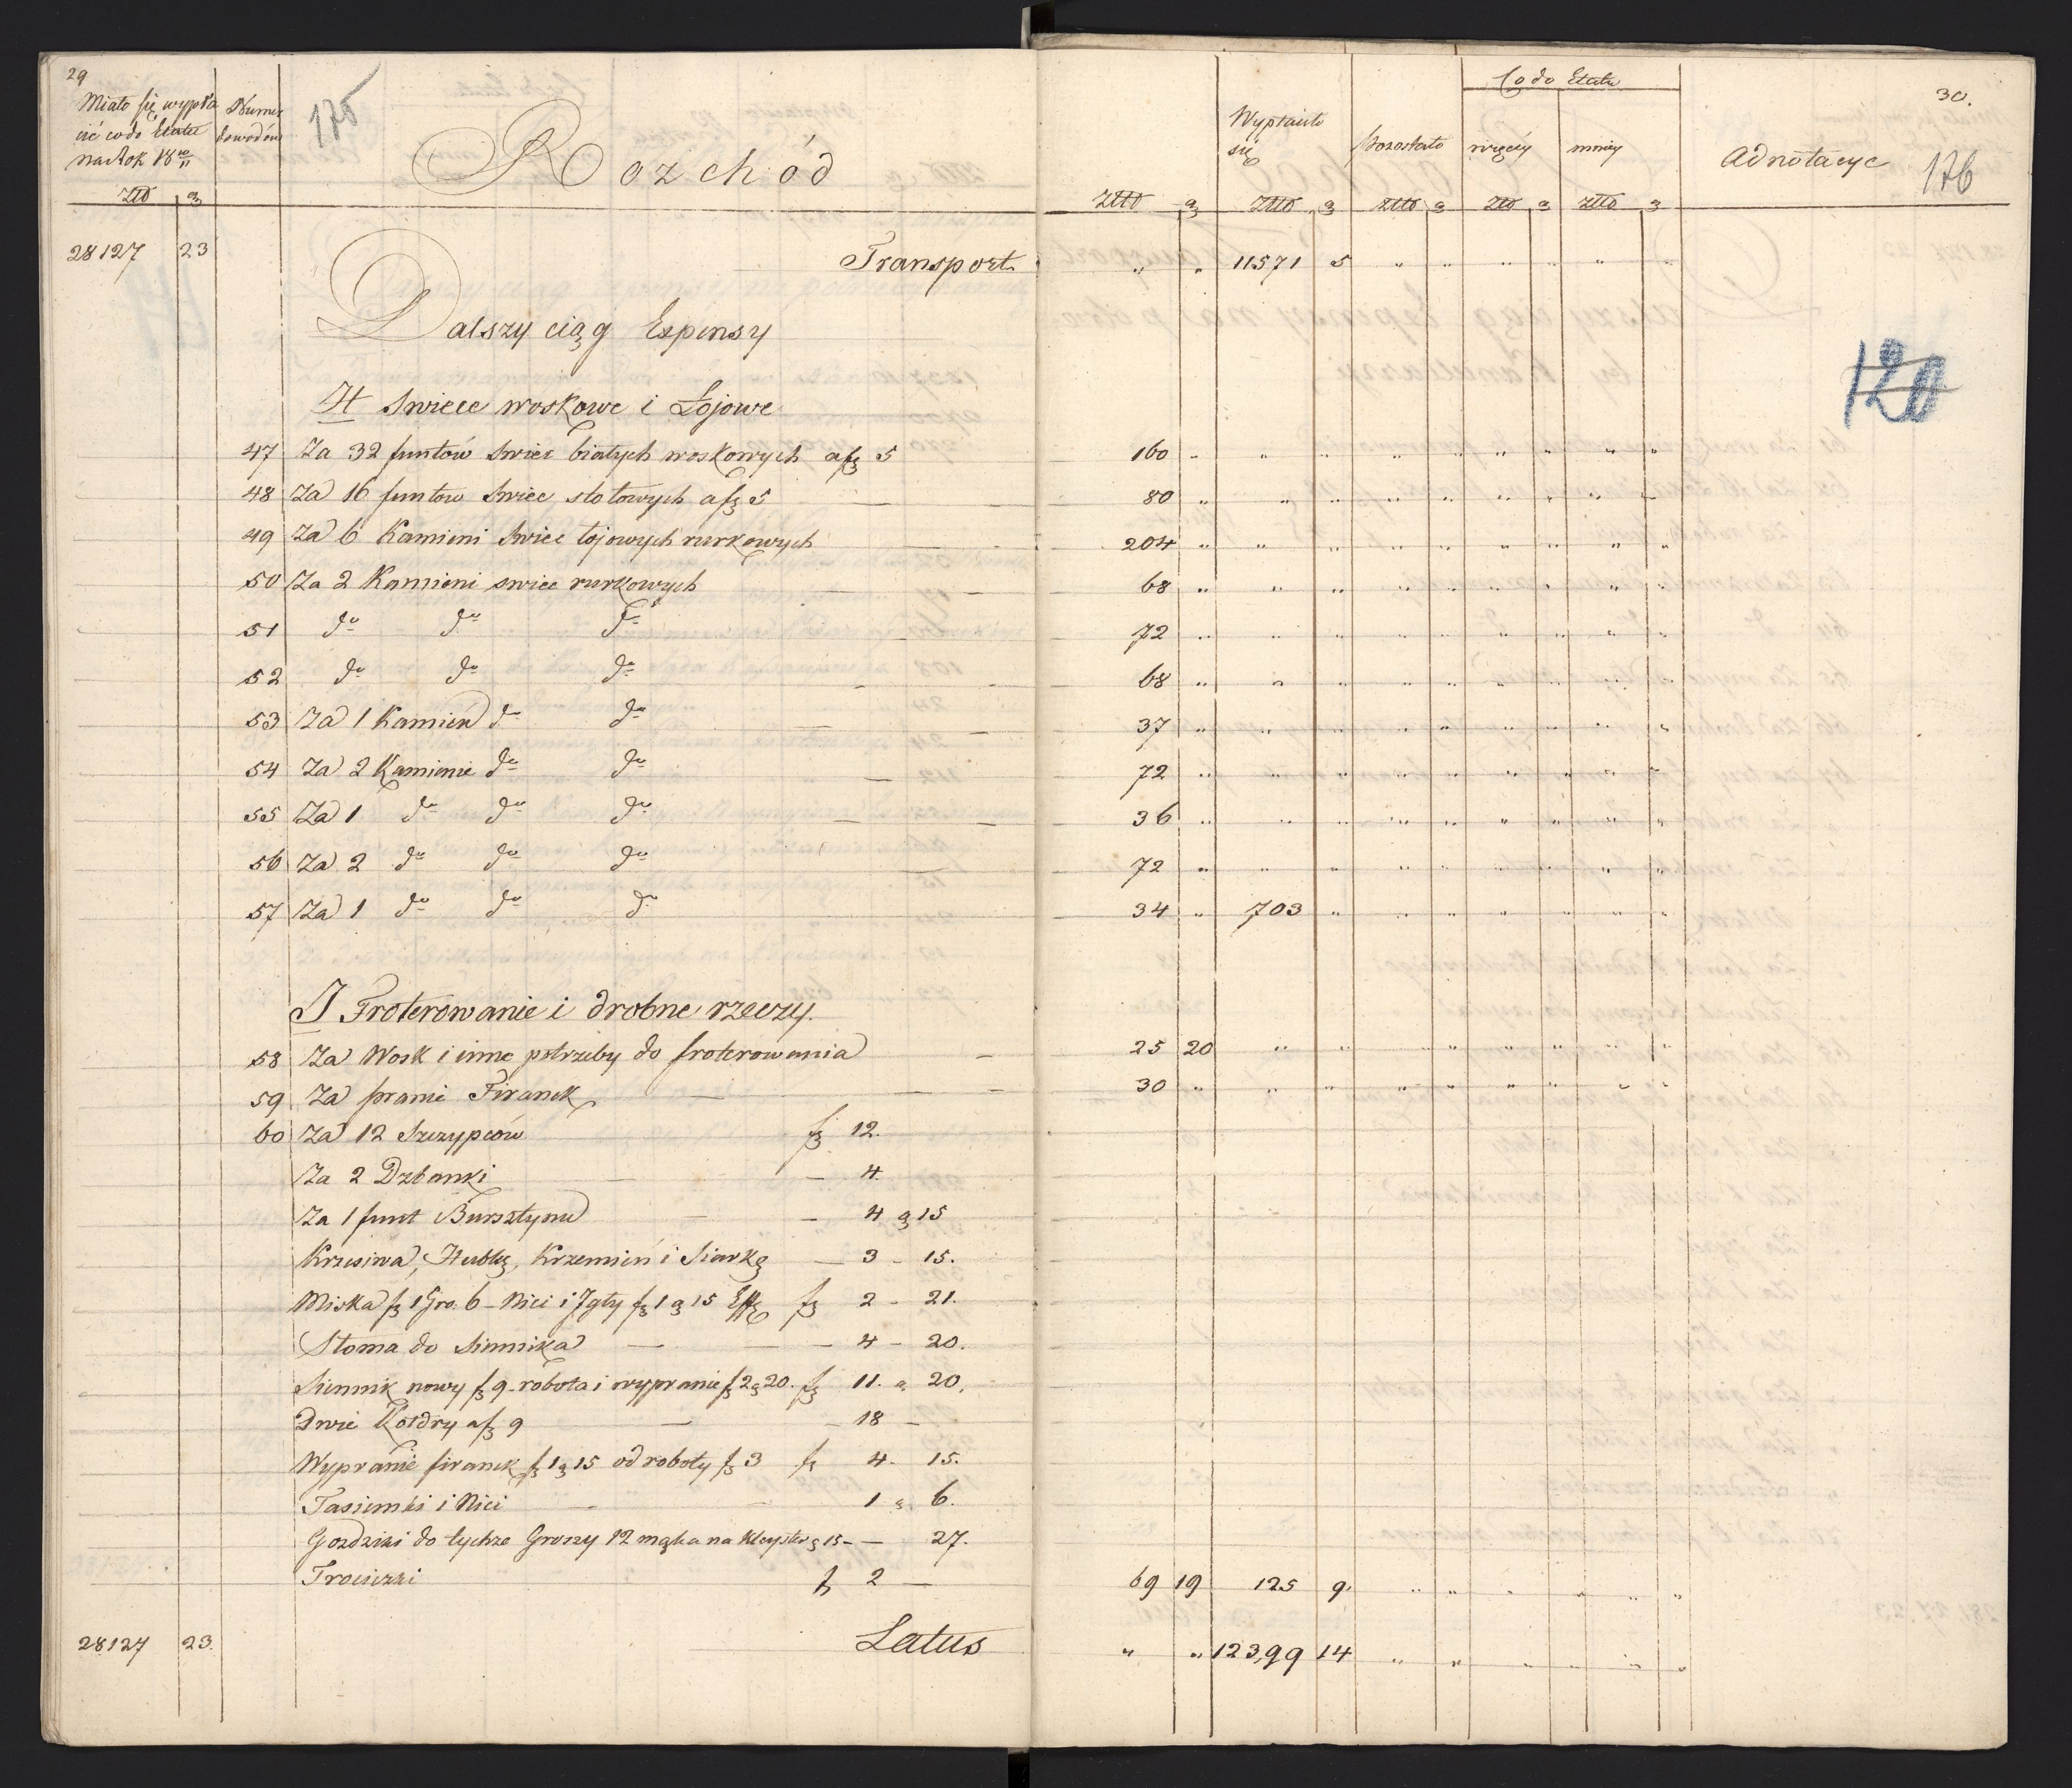 29
Miało się wypła Numer 175
cić codo Etatu dowodów
na Rok 18 10/11
Rozchód
Złł g
28127 23 Transport
Dalszy ciąg Expensy
H Swiece woskowe i Łojowe
47 Za 32 funtów Swiec białych woskowych a f 5
48 Za 16 funtow Swiec stołowych a f 5
49 Za 6 Kamieni Swiec łojowych rurkowych
50 Za 2 Kamieni swiec rurkowych
51 do do do
52 do do do
53 Za 1 Kamień do do
54 Za 2 Kamienie do do
55 Za 1 do do do
56 Za 2 do do do
57 Za 1 do do do
I Froterowanie i drobne rzeczy.
58 Za Wosk i inne potrzeby do froterowania
59 Za pranie Firanek
60 Za 12 Szczypców f 12.
Za 2 Dzbanki 4.
Za 1 funt Bursztynu 4 g 15
Krzesiwa, Hubkę, Krzemień i Siarkę 3 - 15.
Miska f 1 Gro. 6 - Nici i Igły f 1 g 15 f 2 - 21.
Słoma do Siennika 4 - 20.
Siennik nowy f 9 - robota i wypranie f 2 g 20. f 11. „ 20.
Dwie Kołdry a f 9 18 -
Wypranie firanek f 1 g 15 od roboty f 3 f 4 - 15.
Tasiemki i Nici 1 „ 6.
Gozdziki do tychze Groszy 12 mąka na Kleyster g 15 - - 27.
Trociczki f 2 -
28127 23. Latus
30.
Co do Etatu
Wypłaciło się Pozostało więcéy mniéy Adnotacye 176
Złł g Złł g Złł g Złł g Złł g
„ „ 11571 5 „ „ „ „ „ „
120
160 „ „ „ „ „ „ „ „ „
80 „ „ „ „ „ „ „ „ „
204 „ „ „ „ „ „ „ „ „
68 „ „ „ „ „ „ „ „ „
72 „ „ „ „ „ „ „ „ „
68 „ „ „ „ „ „ „ „ „
37 „ „ „ „ „ „ „ „ „
72 „ „ „ „ „ „ „ „ „
36 „ „ „ „ „ „ „ „ „
72 „ „ „ „ „ „ „ „ „
34 „ 703 „ „ „ „ „ „ „
25 20 „ „ „ „ „ „ „ „
30 „ „ „ „ „ „ „ „ „
69 19 125 9. „ „ „ „ „ „
„ „ 123,99 14 „ „ „ „ „ „